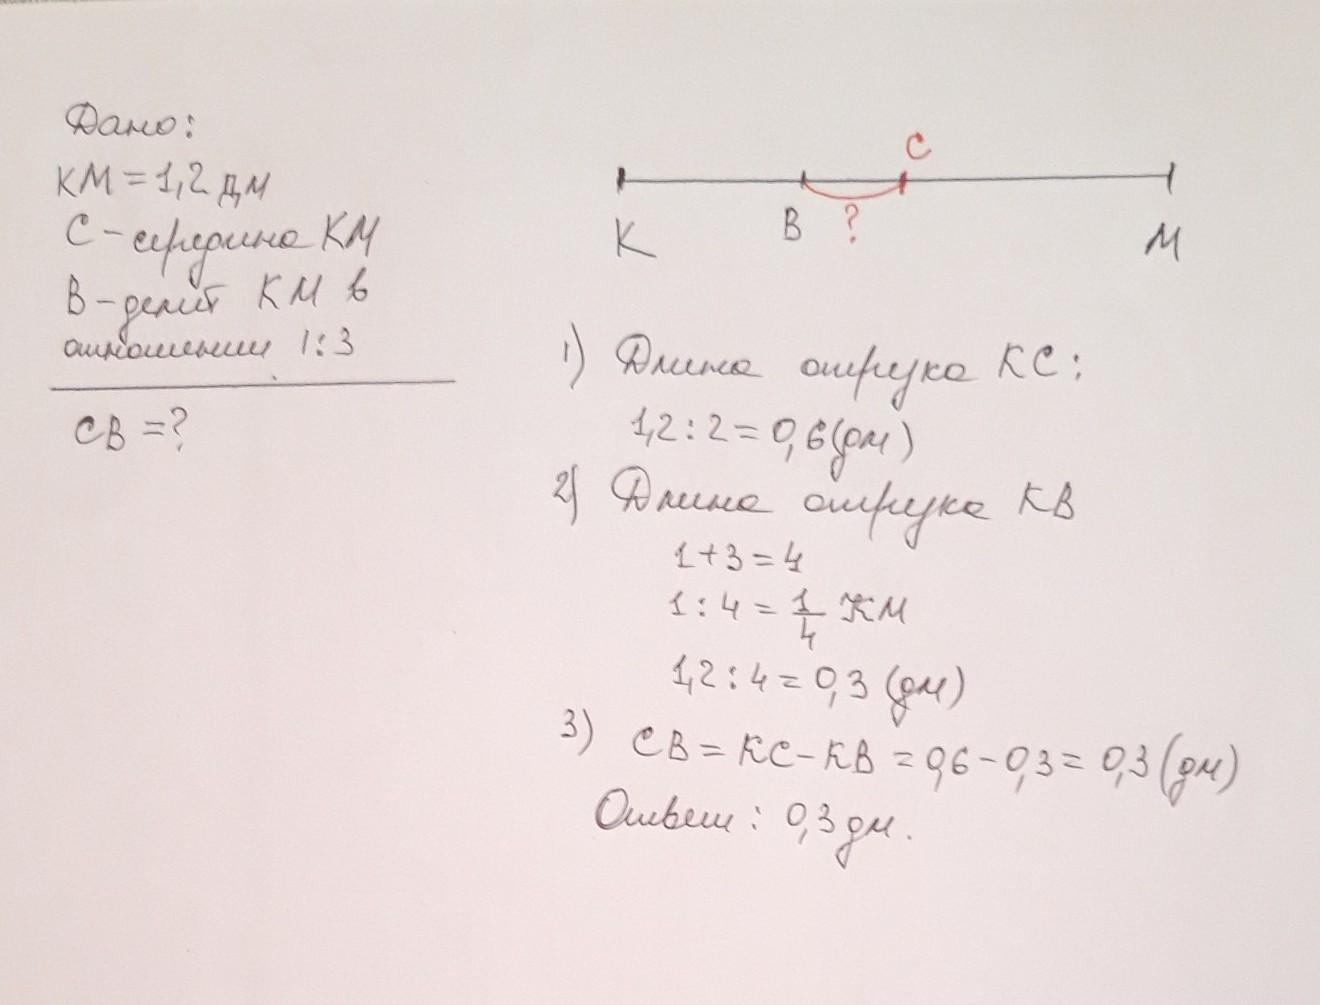 Дано:
КМ = 1,2 дм
С - середина КМ
В - делит КМ в
отношении 1:3
СВ = ?
С
К
В
?
М
1) Длина отрезка КС:
1,2 : 2 = 0,6 (дм)
2) Длина отрезка КВ
1 + 3 = 4
1 : 4 = 1/4 КМ
1,2 : 4 = 0,3 (дм)
3) СВ = КС - КВ = 0,6 - 0,3 = 0,3 (дм)
Ответ: 0,3 дм.